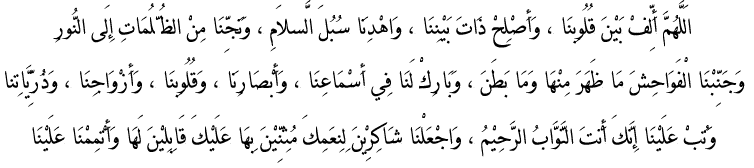 اَللَّهُمَّ أَلِّفْ بَيْنَ قُلُوبِنَا ، وَأَصْلِحْ ذَاتَ بَيْنِنَا ، وَاهْدِنَا سُبُلَ السَّلاَمِ ، وَنَجِّنَا مِنْ الظُّلُمَاتِ إِلَى النُّورِ
وَجَنِّبْنَا الْفَوَاحِشَ مَا ظَهَرَ مِنْهَا وَمَا بَطَنَ ، وَبَارِكْ لَنَا فِي أَسْمَاعِنَا ، وَأَبْصَارِنَا ، وَقُلُوبِنَا ، وَأَزْوَاجِنَا ، وَذُرِّيَّاتِنا
وَتُبْ عَلَيْنَا إِنَّكَ أَنتَ التَّوَّابُ الرَّحِيْمُ ، وَاجْعَلْنَا شَاكِرِيْنَ لِنِعَمِكَ مُثْنِيْنَ بِهَا عَلَيْكَ قَابِلِيْنَ لَهَا وَأَتْمِمْنَا عَلَيْنَا